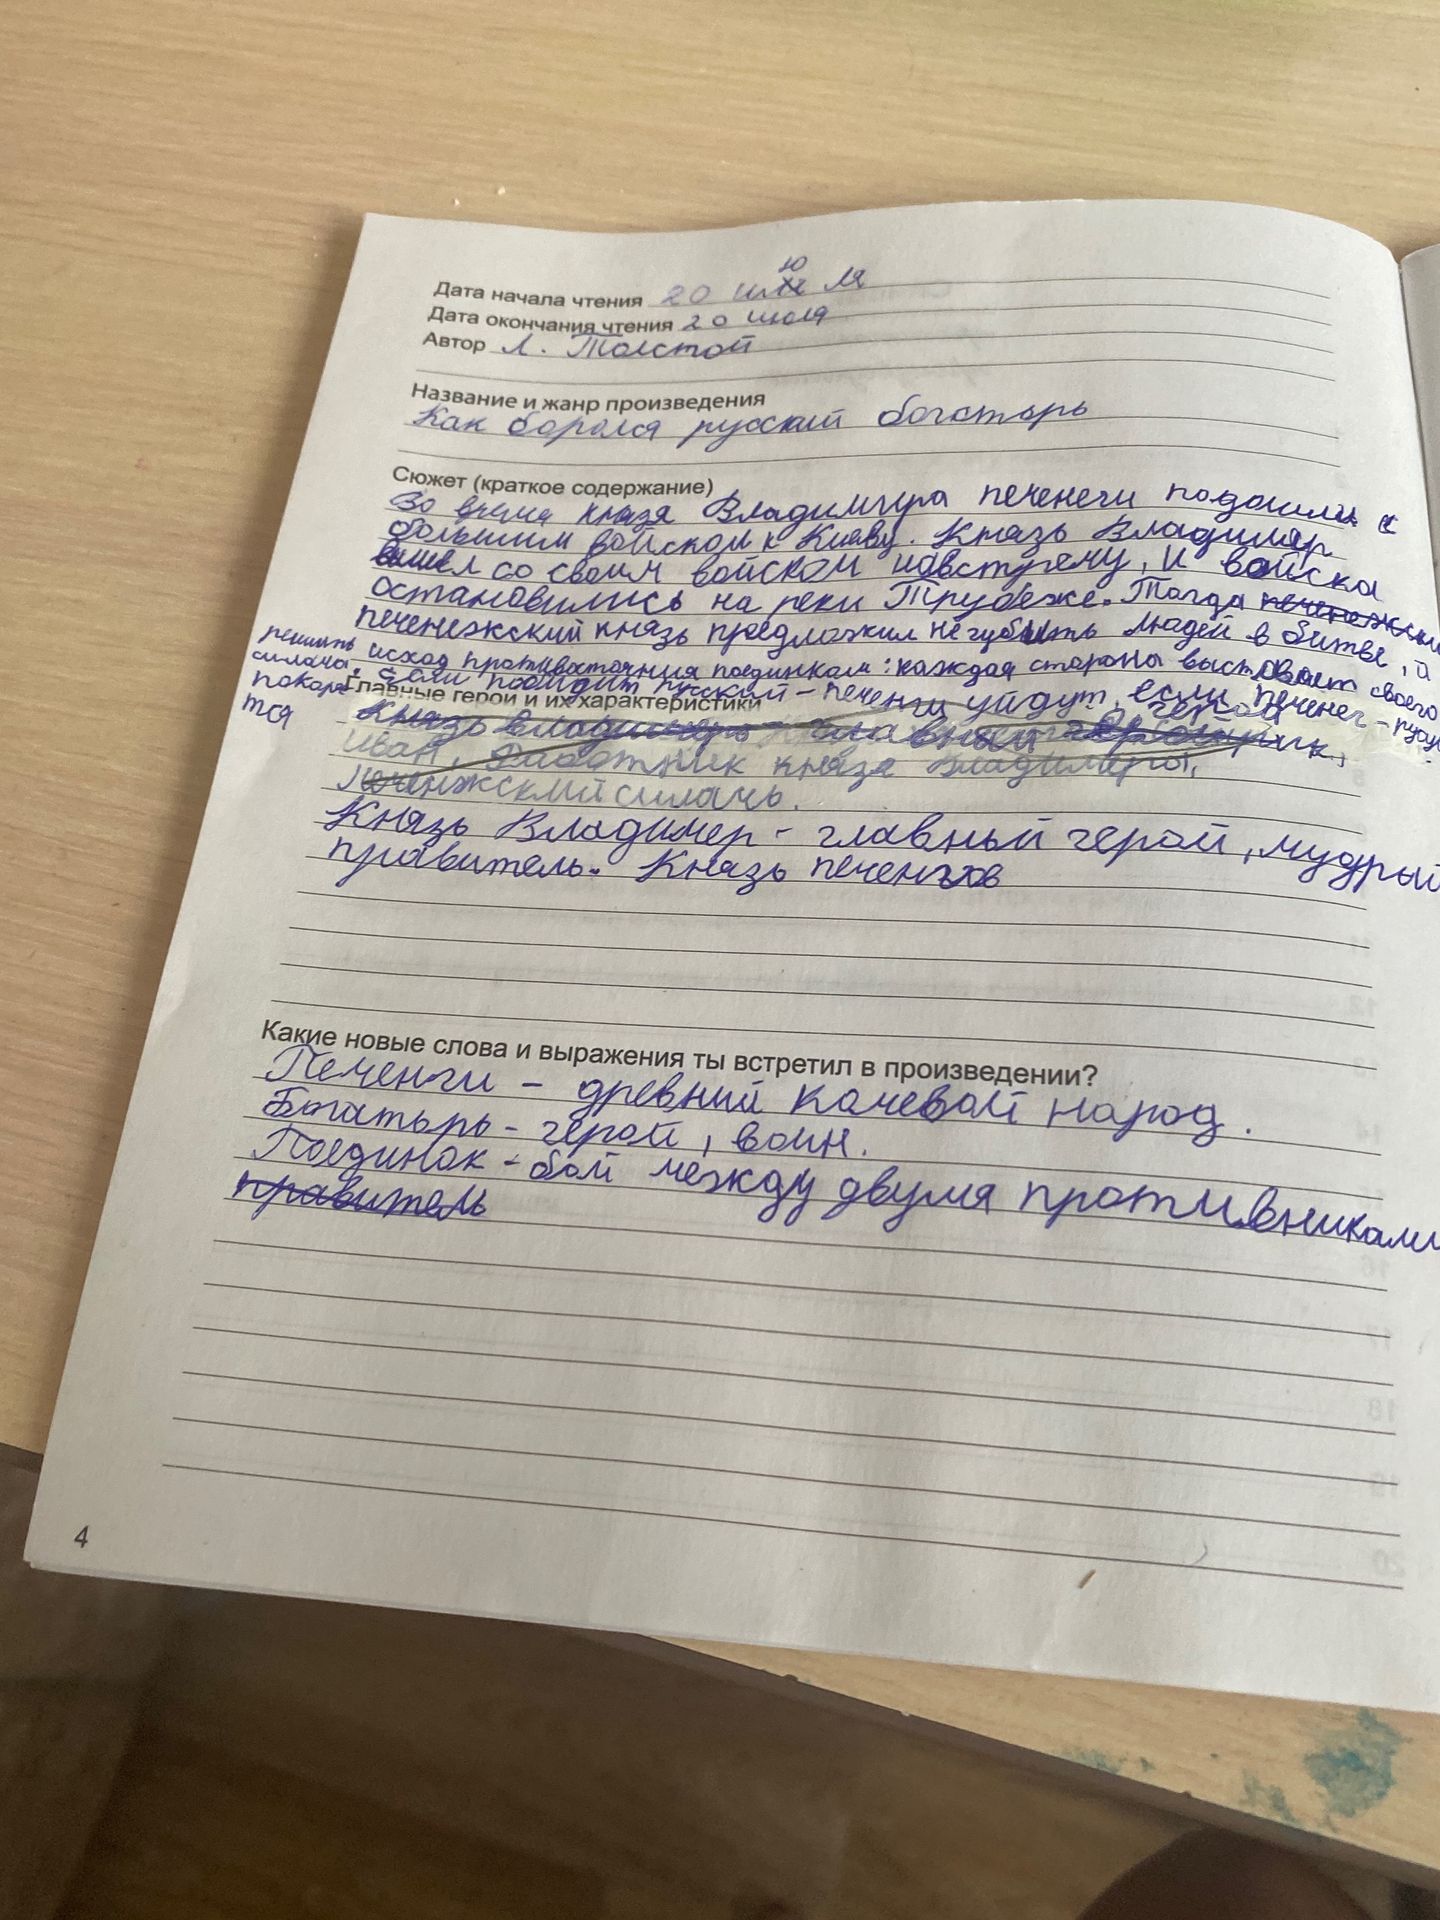 Дата начала чтения 20 июля
Дата окончания чтения 20 июля
Автор Л. Толстой
Название и жанр произведения
Как боролся русский богатырь
Сюжет (краткое содержание)
Во время князя Владимира печенеги подошли с
большим войском к Киеву. Князь Владимир
вышел со своим войском навстречу, и войска
остановились на реки Трубеже. Тогда
печенежский князь предложил не губить людей в битве, а
решить исход противостояния поединком: каждая сторона выставит своего
силача. Если победит русский – печенеги уйдут, если печенег –
покоря
тся
Главные герои и их характеристики
Князь Владимир
Иван, работник князя Владимира,
Печенжский силачь.
Князь Владимер - главный герой, мудрый
правитель. Князь печенегов
Какие новые слова и выражения ты встретил в произведении?
Печенги – древний качевой народ.
Богатырь – герой, воин.
Поединок – бой между двумя противниками
правитель
4